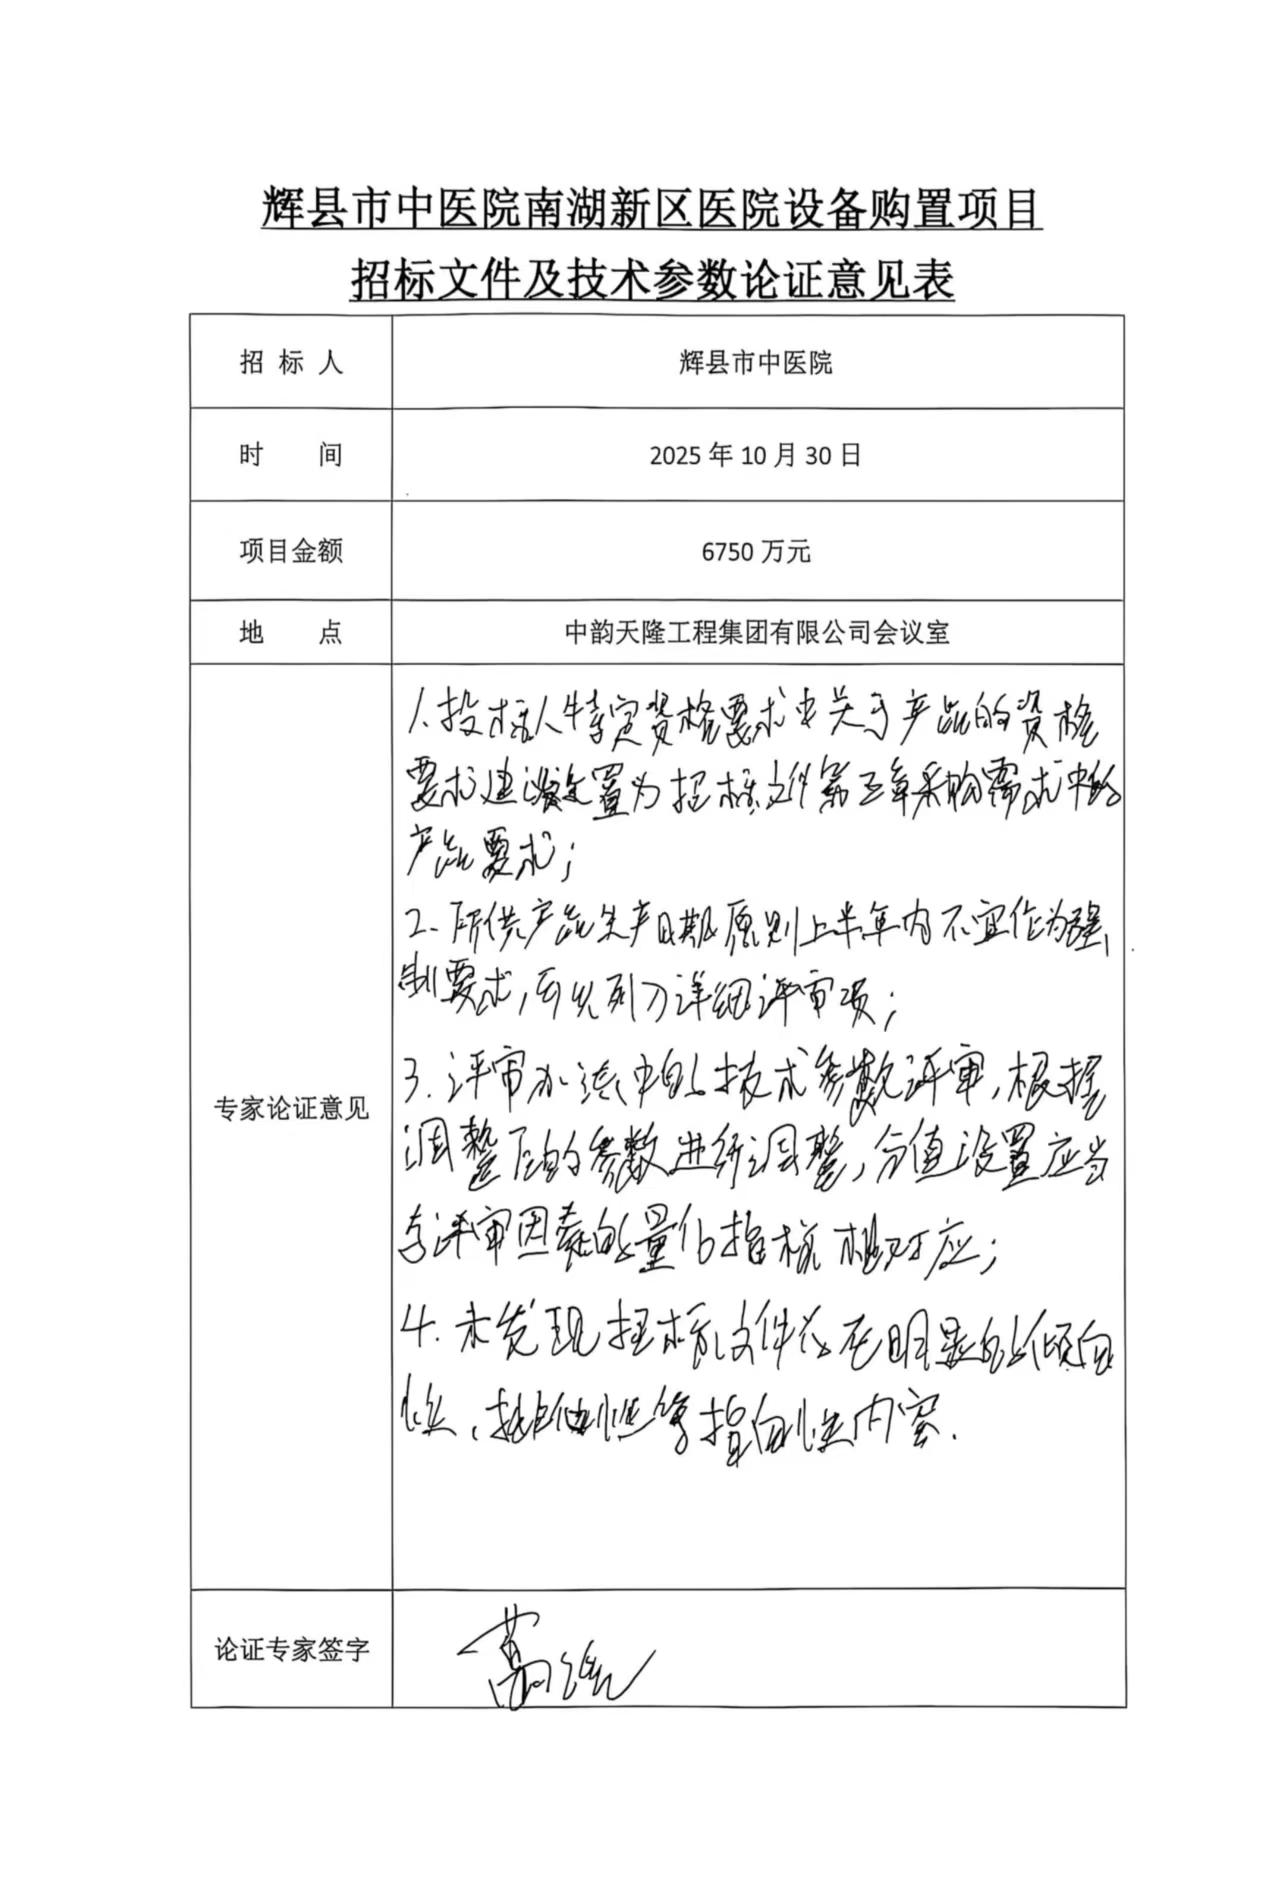 辉县市中医院南湖新区医院设备购置项目
招标文件及技术参数论证意见表
招 标 人 辉县市中医院
时 间 2025 年 10 月 30 日
项目金额 6750 万元
地 点 中韵天隆工程集团有限公司会议室
专家论证意见
1.投标人特定资格要求中关于产品的资格
要求建议设置为招标文件第五章采购需求中的
产品要求；
2.所供产品生产日期原则上半年内不宜作为强
制要求，可以列入详细评审项；
3.评审办法中的技术参数评审，根据
调整后的参数进行调整，分值设置应当
与评审因素的量化指标相对应；
4.未发现招标文件存在明显的倾向
性、排他性等指向性内容.
论证专家签字